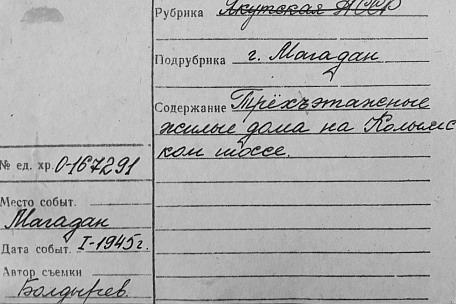 Рубрика Якутская АССР
Подрубрика г. Магадан
Содержание Трёхъэтажные
жилые дома на Колымс
ком шоссе.
№ ед. хр. 0-167291
Место событ.
Магадан
Дата событ. I-1945г.
Автор съемки
Болдырев.